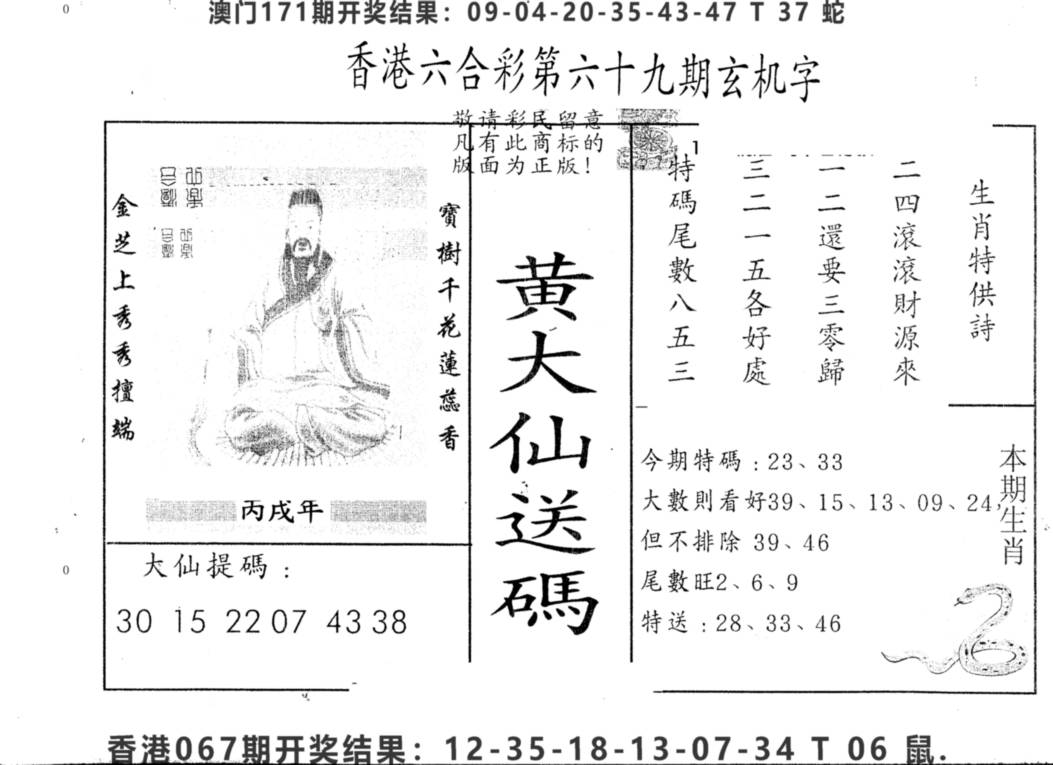 澳门171期开奖结果：09-04-20-35-43-47 T 37 蛇
香港六合彩第六十九期玄机字
敬请彩民留意
凡有此商标的
版面为正版！
金芝上秀秀擅端
寶樹千花蓮蕊香
丙戌年
大仙提碼：
30 15 22 07 43 38
黄大仙送碼
生肖特供詩
二四滾滾財源來
一二還要三零歸
三二一五各好處
特碼尾數八五三
1
今期特碼：23、33
大數則看好39、15、13、09、24,
但不排除 39、46
尾數旺2、6、9
特送：28、33、46
本期生肖
香港067期开奖结果：12-35-18-13-07-34 T 06 鼠.